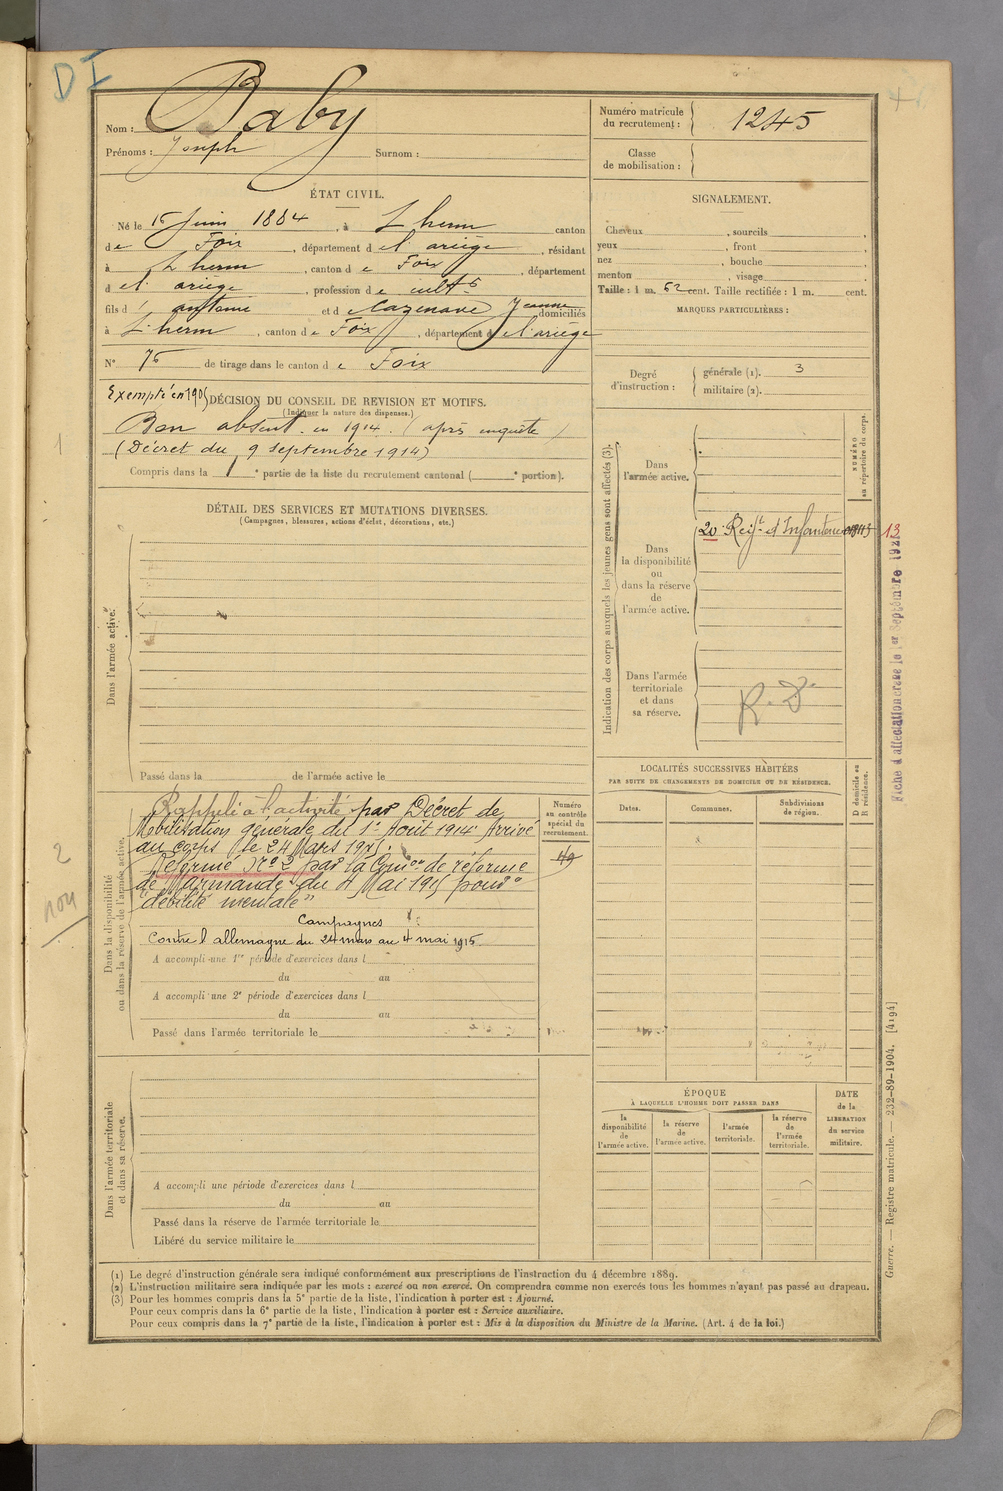 DI
Nom : Baby
Prénoms : Joseph Surnom :
Numéro matricule du recrutement : 1245
Classe de mobilisation :
ÉTAT CIVIL.
Né le 15 Juin 1884, à L'herm canton
de Foix, département de l'ariège, résidant
à L'herm, canton de Foix, département
de l'ariège, profession de cultr
fils d' antoine et de Cazenave Jeanne domiciliés
à L'herm, canton de Foix, département de l'ariège
N° 75 de tirage dans le canton de Foix
SIGNALEMENT.
Cheveux , sourcils ,
yeux , front ,
nez , bouche ,
menton , visage
Taille : 1 m. 62 cent. Taille rectifiée : 1 m. cent.
MARQUES PARTICULIÈRES :
Degré d'instruction : générale (1). 3
militaire (2).
Exempté en 1905 DÉCISION DU CONSEIL DE REVISION ET MOTIFS.
(Indiquer la nature des dispenses.)
Bon absent en 1914 (après enquête)
(Décret du 9 septembre 1914)
Compris dans la 1e partie de la liste du recrutement cantonal ( e portion).
1
DÉTAIL DES SERVICES ET MUTATIONS DIVERSES.
(Campagnes, blessures, actions d'éclat, décorations, etc.)
Dans l'armée active.
Passé dans la de l'armée active le
Indication des corps auxquels les jeunes gens sont affectés (3).
NUMÉRO au répertoire du corps.
Dans l'armée active.
20e Regt d'Infanterie 13
Dans la disponibilité ou dans la réserve de l'armée active.
Dans l'armée territoriale et dans sa réserve.
R. D.
Fiche d'affectation crase le 1er Septembre 192
Dans la disponibilité ou dans la réserve de l'armée active.
Rappelé à l'activité par Décret de
Mobilisation générale du 1er Août 1914 Arrivé
au corps le 24 Mars 1915.
Réformé No 2 par la Comon de réforme
de Marmande du 4 Mai 1915 pour
"débilité mentale"
Campagnes
Contre l'allemagne du 24 mars au 4 mai 1915.
2
non
Numéro au contrôle spécial du recrutement.
49
A accompli une 1re période d'exercices dans l
du au
A accompli une 2e période d'exercices dans l
du au
Passé dans l'armée territoriale le
LOCALITÉS SUCCESSIVES HABITÉES
PAR SUITE DE CHANGEMENTS DE DOMICILE OU DE RÉSIDENCE.
Dates. Communes. Subdivisions de région.
D domicile ou R résidence.
Dans l'armée territoriale et dans sa réserve.
A accompli une période d'exercices dans l
du au
Passé dans la réserve de l'armée territoriale le
Libéré du service militaire le
ÉPOQUE
À LAQUELLE L'HOMME DOIT PASSER DANS
la disponibilité de l'armée active.
la réserve de l'armée active.
l'armée territoriale.
la réserve de l'armée territoriale.
DATE de la LIBÉRATION du service militaire.
Guerre. — Registre matricule. — 232-89-1904. [4194]
(1) Le degré d'instruction générale sera indiqué conformément aux prescriptions de l'instruction du 4 décembre 1889.
(2) L'instruction militaire sera indiquée par les mots : exercé ou non exercé. On comprendra comme non exercés tous les hommes n'ayant pas passé au drapeau.
(3) Pour les hommes compris dans la 5e partie de la liste, l'indication à porter est : Ajourné.
Pour ceux compris dans la 6e partie de la liste, l'indication à porter est : Service auxiliaire.
Pour ceux compris dans la 7e partie de la liste, l'indication à porter est : Mis à la disposition du Ministre de la Marine. (Art. 4 de la loi.)